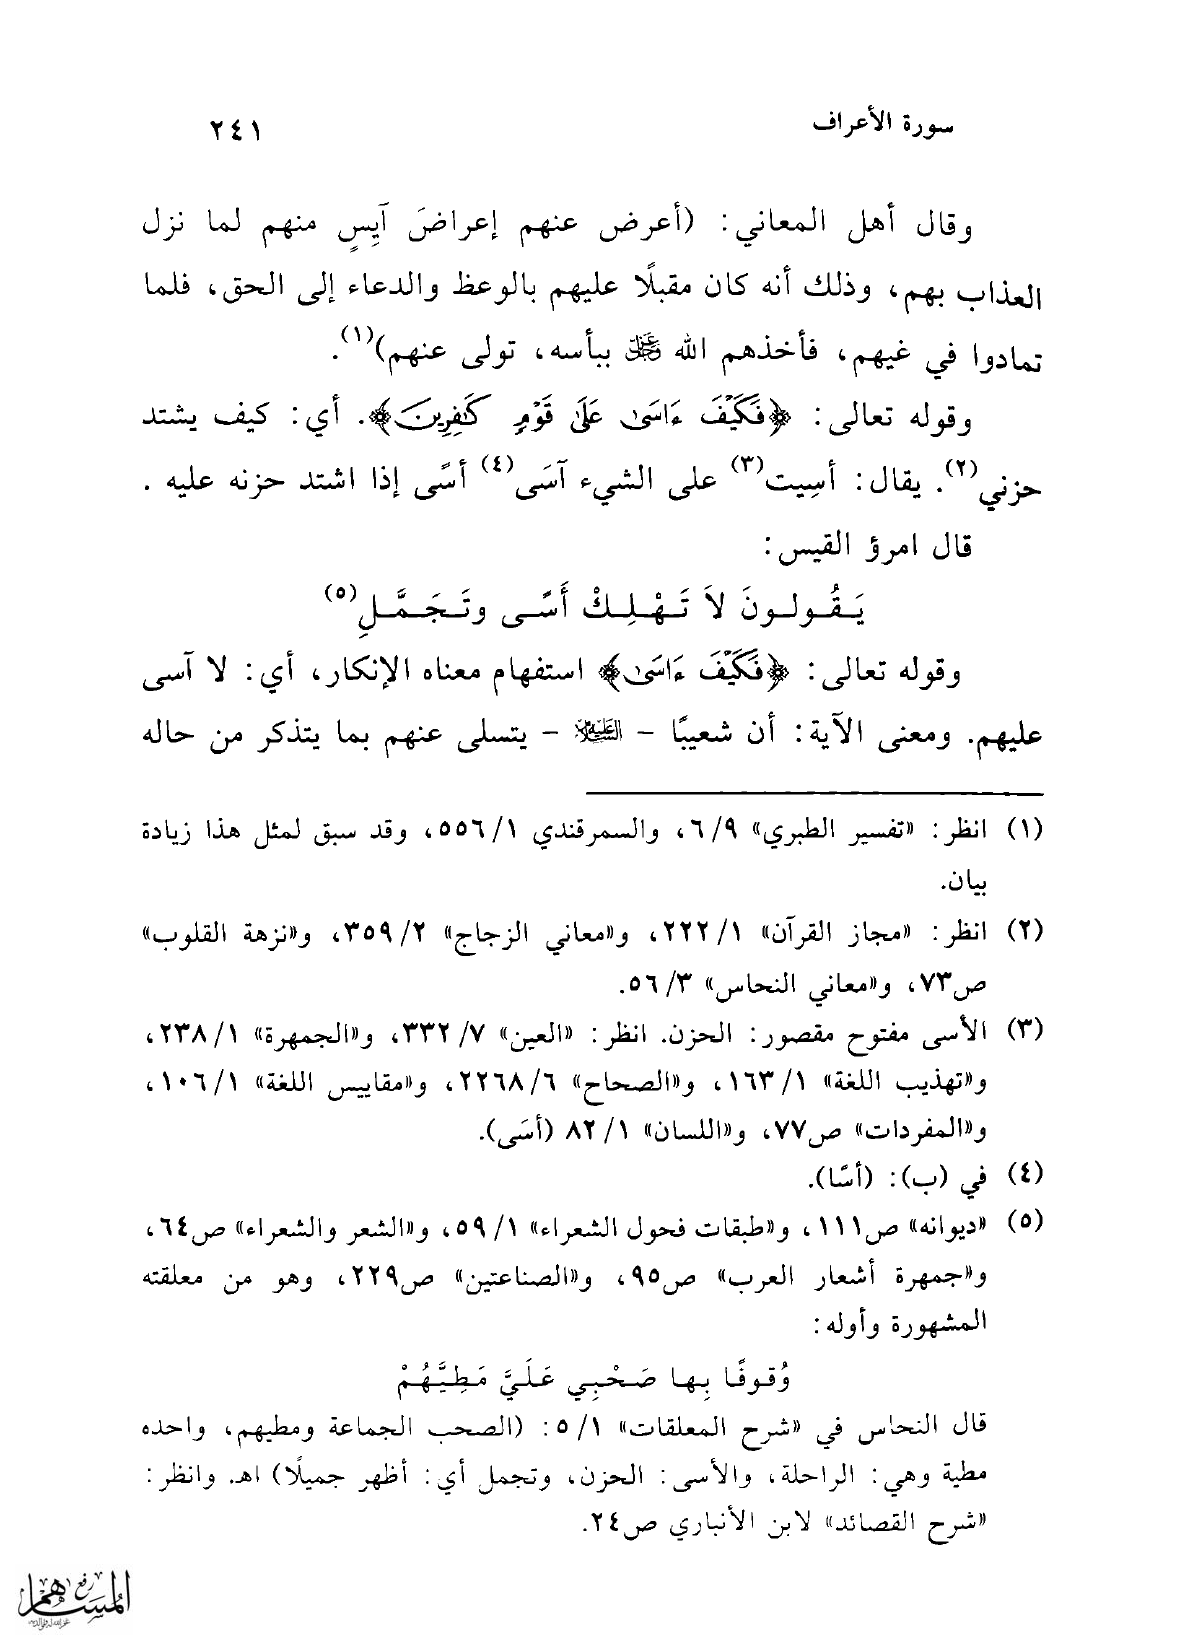 سورة الأعراف ٢٤١
وقال أهل المعاني: (أعرض عنهم إعراضَ آيِسٍ منهم لما نزل
العذاب بهم، وذلك أنه كان مقبلًا عليهم بالوعظ والدعاء إلى الحق، فلما
تمادوا في غيهم، فأخذهم الله عز وجل ببأسه، تولى عنهم)(١).
وقوله تعالى: ﴿فَكَيْفَ ءَاسَىٰ عَلَىٰ قَوْمٍ كَٰفِرِينَ﴾. أي: كيف يشتد
حزني(٢). يقال: أسِيت(٣) على الشيء آسَى(٤) أسًى إذا اشتد حزنه عليه .
قال امرؤ القيس:
يَقُولونَ لاَ تَهْلِكْ أَسًى وتَجَمَّلِ(٥)
وقوله تعالى: ﴿فَكَيْفَ ءَاسَىٰ﴾ استفهام معناه الإنكار، أي: لا آسى
عليهم. ومعنى الآية: أن شعيبًا - عليه السلام - يتسلى عنهم بما يتذكر من حاله
(١) انظر: «تفسير الطبري» ٩/ ٦، والسمرقندي ١/ ٥٥٦، وقد سبق لمثل هذا زيادة
بيان.
(٢) انظر: «مجاز القرآن» ١/ ٢٢٢، و«معاني الزجاج» ٢/ ٣٥٩، و«نزهة القلوب»
ص٧٣، و«معاني النحاس» ٣/ ٥٦.
(٣) الأسى مفتوح مقصور: الحزن. انظر: «العين» ٧/ ٣٣٢، و«الجمهرة» ١/ ٢٣٨،
و«تهذيب اللغة» ١/ ١٦٣، و«الصحاح» ٦/ ٢٢٦٨، و«مقاييس اللغة» ١/ ١٠٦،
و«المفردات» ص٧٧، و«اللسان» ١/ ٨٢ (أسَى).
(٤) في (ب): (أسًا).
(٥) «ديوانه» ص١١١، و«طبقات فحول الشعراء» ١/ ٥٩، و«الشعر والشعراء» ص٦٤،
و«جمهرة أشعار العرب» ص٩٥، و«الصناعتين» ص٢٢٩، وهو من معلقته
المشهورة وأوله:
وُقوفًا بِها صَحْبِي عَلَيَّ مَطِيَّهُمْ
قال النحاس في «شرح المعلقات» ١/ ٥: (الصحب الجماعة ومطيهم، واحده
مطية وهي: الراحلة، والأسى: الحزن، وتجمل أي: أظهر جميلًا) اهـ. وانظر:
«شرح القصائد» لابن الأنباري ص٢٤.